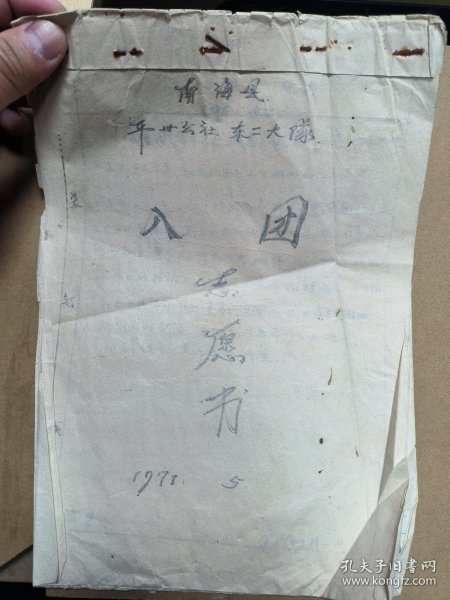 南海县
平卅公社 东二大队
入团
志
愿
书
197 . 5
孔夫子旧书网
www.kongfz.com